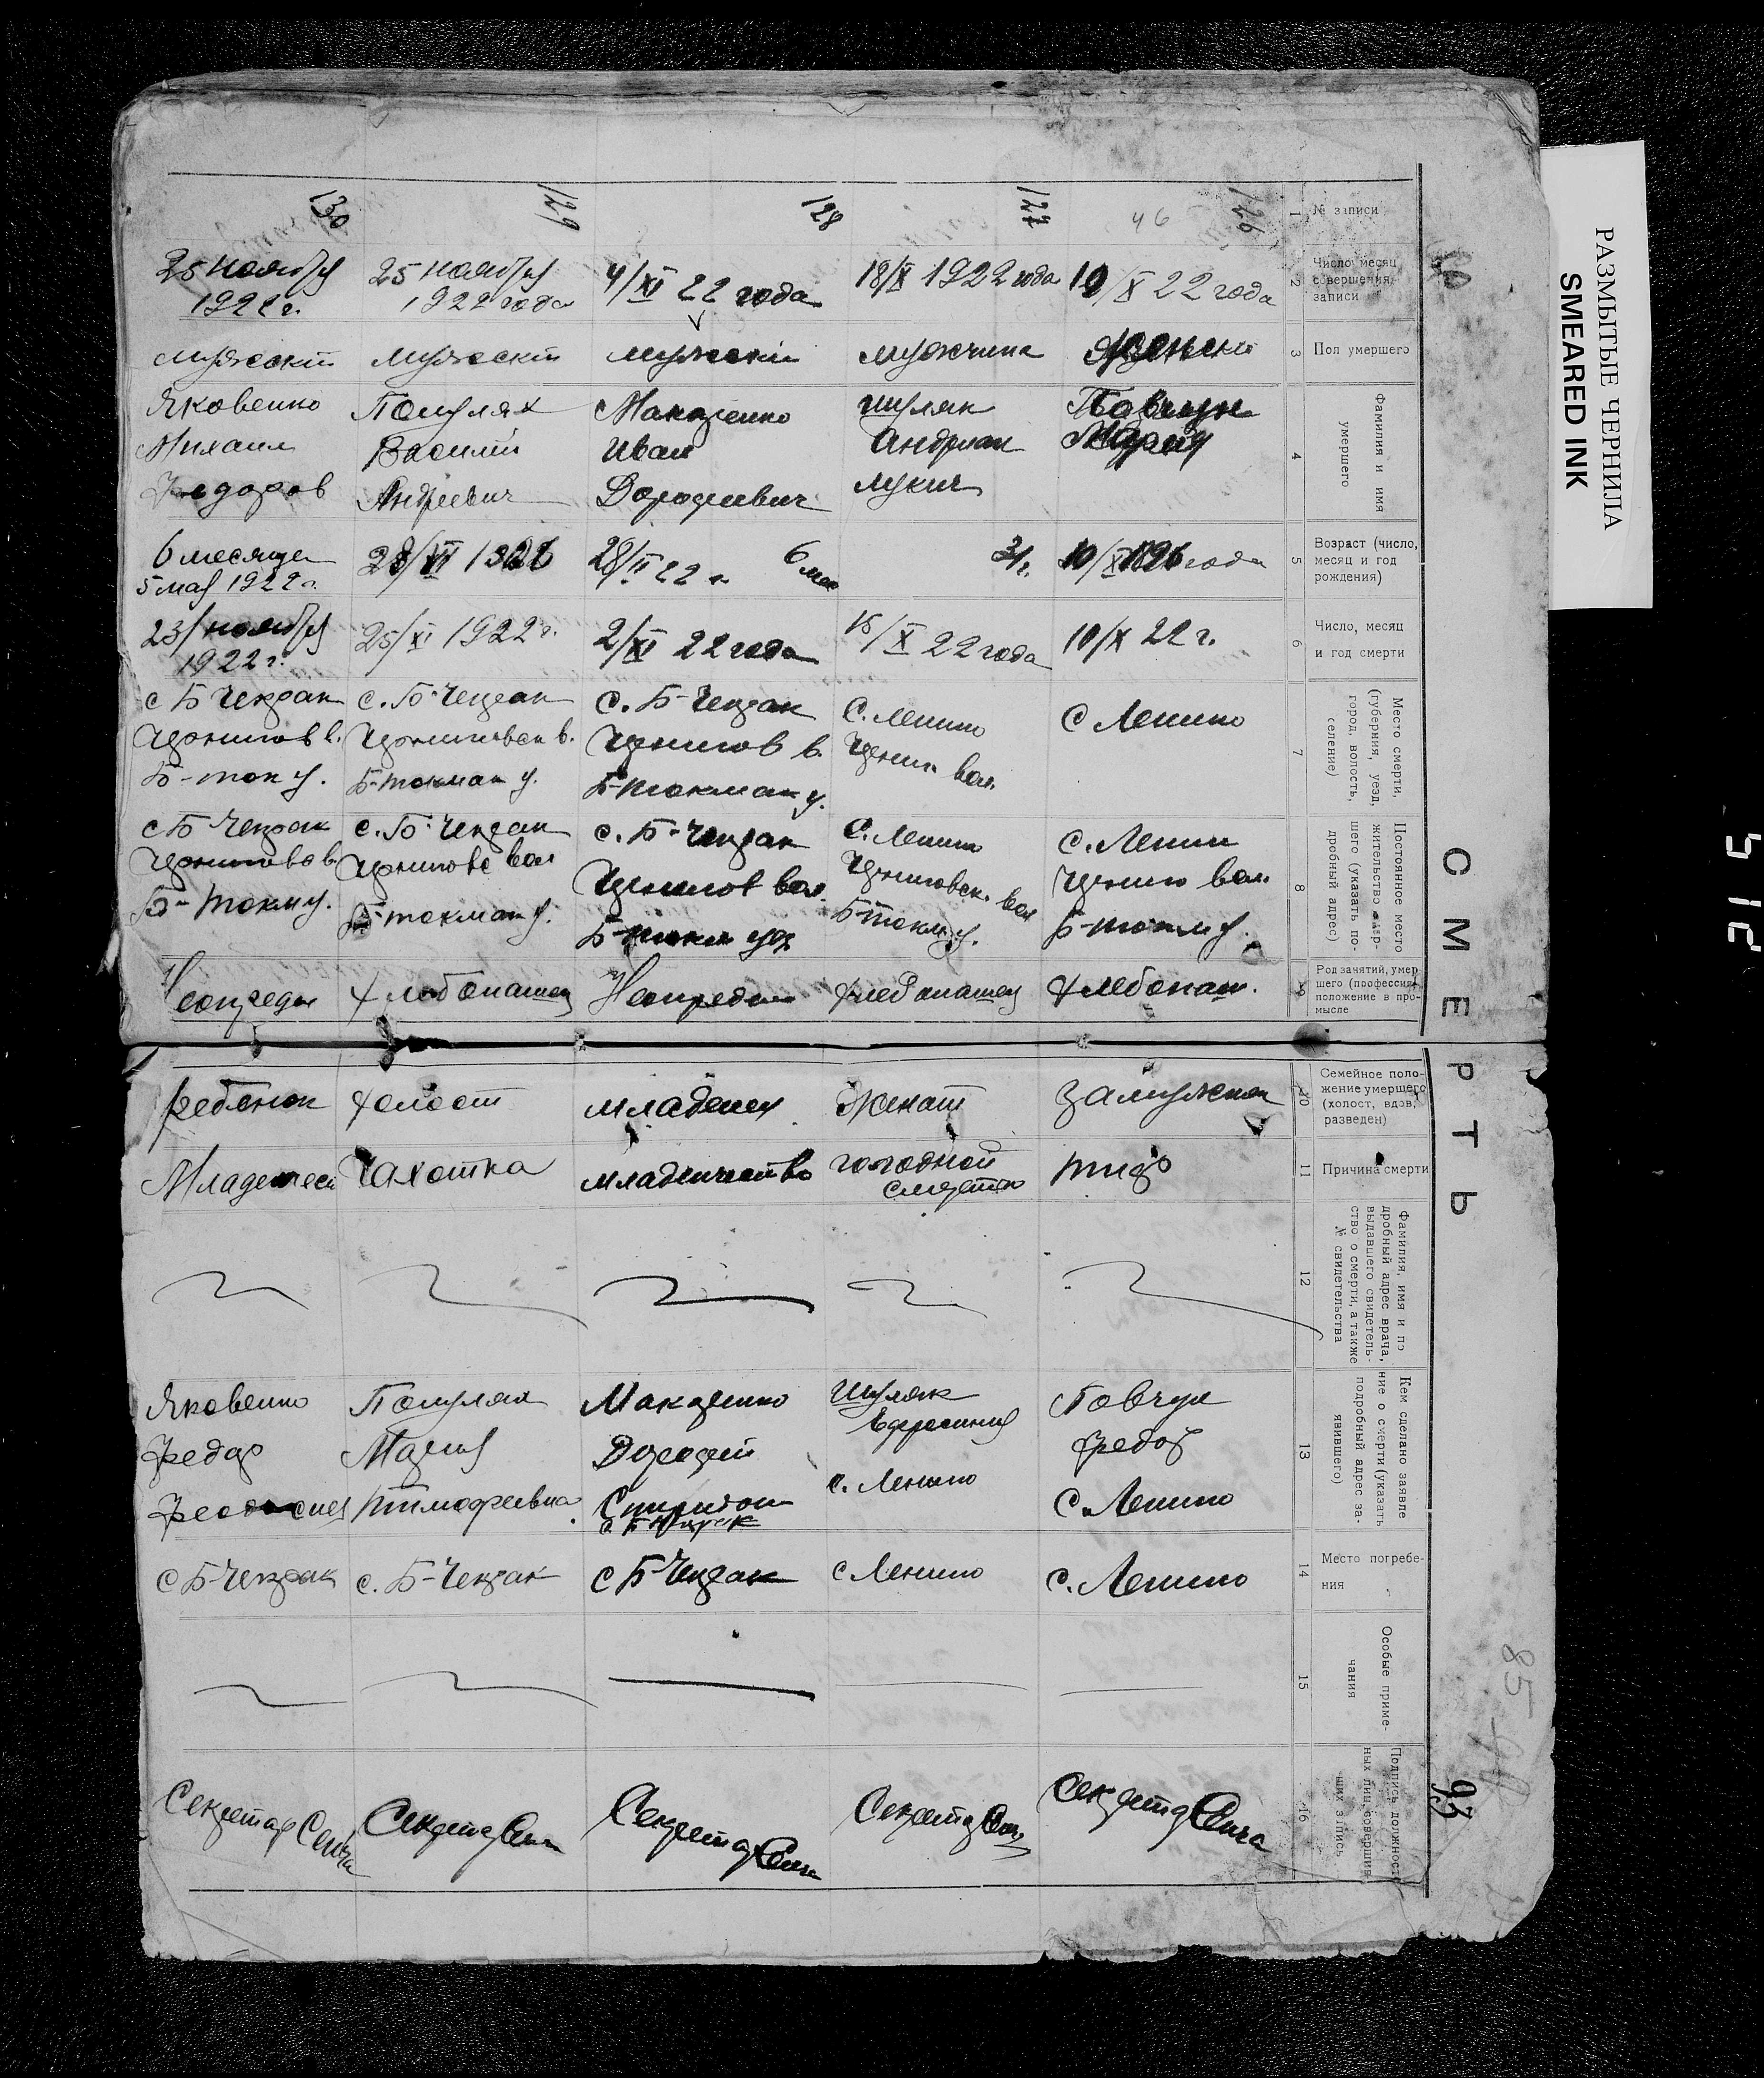 РАЗМЫТЫЕ ЧЕРНИЛА
SMEARED INK
СМЕРТЬ
1
№ записи
126
46
127
128
129
130
2
Число, месяц
совершения
записи
19/X 22 года
18/X 1922 года
4/XI 22 года
25 ноября
1922 года
25 ноября
1922 г.
3
Пол умершего
мужчина
мужески
мужески
мужески
4
Фамилия и имя
умершего
Шуляк
Андриан
Лукич
Иван
Василий
Андреевич
Яковенко
Михаил
Федоров
5
Возраст (число,
месяц и год
рождения)
28/II 22 г.
6 мес
6 месяцев
5 мая 1922 г.
6
Число, месяц
и год смерти
10/X 22 г.
15/X 22 года
2/XI 22 года
25/XI 1922 г.
23/ноября
1922 г.
7
Место смерти,
(губерния, уезд,
город, волость,
селение)
с Ленино
с. Ленино
Черниг. вол.
с. Б-Чекрак
Чернигов в.
Б-токмак у.
с. Б-Чекрак
Черниговск в.
Б-токмак у.
с Б Чекрак
Чернигов в.
Б-ток у.
8
Постоянное место
жительство умер-
шего (указать по-
дробный адрес)
с. Ленин
Черниго вол.
Б-токм у.
с. Ленино
Черниговск. вол
Б-токм у.
с. Б-Чекрак
Чернигов вол.
Б-токм уез
с. Б-Чекрак
Черниговс вол
Б-токмак у.
с Б Чекрак
Чернигов в.
Б-Токм у.
9
Род занятий, умер
шего (профессия,
положение в про-
мысле
Хлебопаш.
Хлебопашец
Неопредел
Хлебопашец
Неопредел
10
Семейное поло-
жение умершего
(холост, вдов,
разведен)
Замужняя
Женат
младенец
холост
ребенок
11
Причина смерти
тиф
голодной
смертью
младенчество
Чахотка
Младенчес
12
Фамилия, имя и по
дробный адрес врача,
выдавшего свидетель-
ство о смерти, а также
№ свидетельства
13
Кем сделано заявле
ние о смерти (указать
подробный адрес за-
явившего)
Федор
с. Ленино
Шуляк
Ефросиния
с. Ленино
Дорофей
Мария
Тимофеевна
Яковенко
Федор
14
Место погребе-
ния
с. Ленино
с Ленино
с Б-Чекрак
с. Б-Чекрак
с Б-Чекрак
15
Особые приме-
чания
16
Подпись должност
ных лиц, совершив
ших запись
Секретар
Секретар
Секретар
Секретар
Секретар
85
93